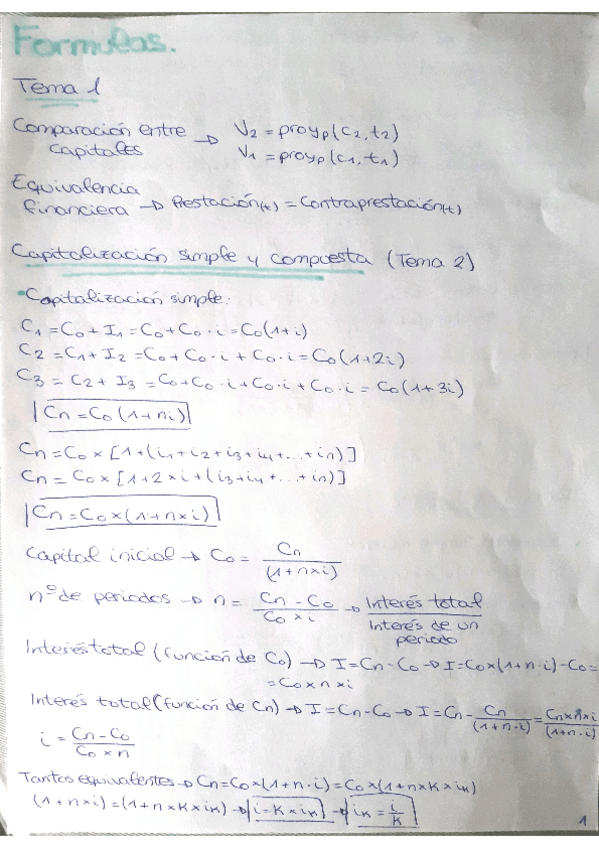 Formulas.
Tema 1
Comparación entre capitales → V2 = proyp(c2, t2)
V1 = proyp(c1, t1)
Equivalencia financiera → Prestación(t) = Contraprestación(t)
Capitalización simple y compuesta (Tema 2)
•Capitalización simple:
C1 = C0 + I1 = C0 + C0 · i = C0(1+i)
C2 = C1 + I2 = C0 + C0 · i + C0 · i = C0(1+2i)
C3 = C2 + I3 = C0 + C0 · i + C0 · i + C0 · i = C0(1+3i)
|Cn = C0(1+ni)|
Cn = C0 × [1+(i1+i2+i3+i4+...+in)]
Cn = C0 × [1+2×i+(i3+i4+...+in)]
|Cn = C0×(1+n×i)|
Capital inicial → C0 = Cn / (1+n×i)
nº de periodos → n = Cn - C0 / C0 × i → Interés total / Interés de un periodo
Interés total (función de C0) → I = Cn - C0 → I = C0×(1+n·i) - C0 =
= C0×n×i
Interés total (función de Cn) → I = Cn - C0 → I = Cn - Cn / (1+n·i) = Cn×n×i / (1+n·i)
i = Cn - C0 / C0 × n
Tantos equivalentes → Cn = C0×(1+n·i) = C0×(1+n×k×ik)
(1+n×i) = (1+n×k×ik) → |i = k×ik| → |ik = i / k|
1